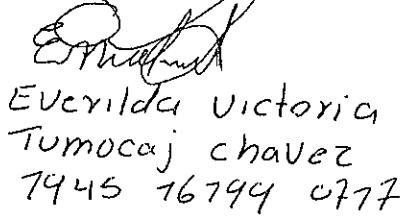 Everilda Victoria
Tumocaj chavez
1945 16794 0717